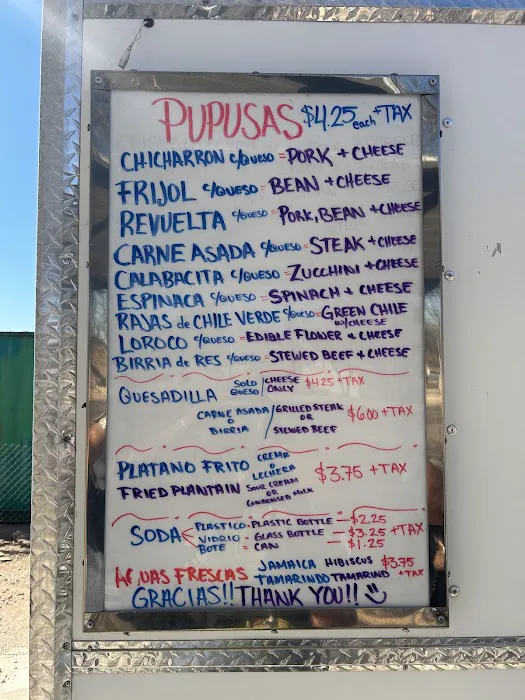 PUPUSAS $4.25 each + TAX
CHICHARRON c/QUESO = PORK + CHEESE
FRIJOL c/QUESO = BEAN + CHEESE
REVUELTA c/QUESO = PORK, BEAN + CHEESE
CARNE ASADA c/QUESO = STEAK + CHEESE
CALABACITA c/QUESO = ZUCCHINI + CHEESE
ESPINACA c/QUESO = SPINACH + CHEESE
RAJAS de CHILE VERDE c/QUESO = GREEN CHILE
w/CHEESE
LOROCO c/QUESO = EDIBLE FLOWER & CHEESE
BIRRIA de RES c/QUESO = STEWED BEEF & CHEESE
QUESADILLA SOLO QUESO / CHEESE ONLY $4.25 + TAX
CARNE ASADA O BIRRIA / GRILLED STEAK OR STEWED BEEF $6.00 + TAX
PLATANO FRITO CREMA O LECHERA
FRIED PLANTAIN SOUR CREAM OR CONDENSED MILK $3.75 + TAX
SODA
PLASTICO - PLASTIC BOTTLE — $2.25
VIDRIO - GLASS BOTTLE — $3.25 + TAX
BOTE = CAN — $1.25
FRESCAS JAMAICA HIBISCUS $3.75
TAMARINDO TAMARIND + TAX
GRACIAS!! THANK YOU!!